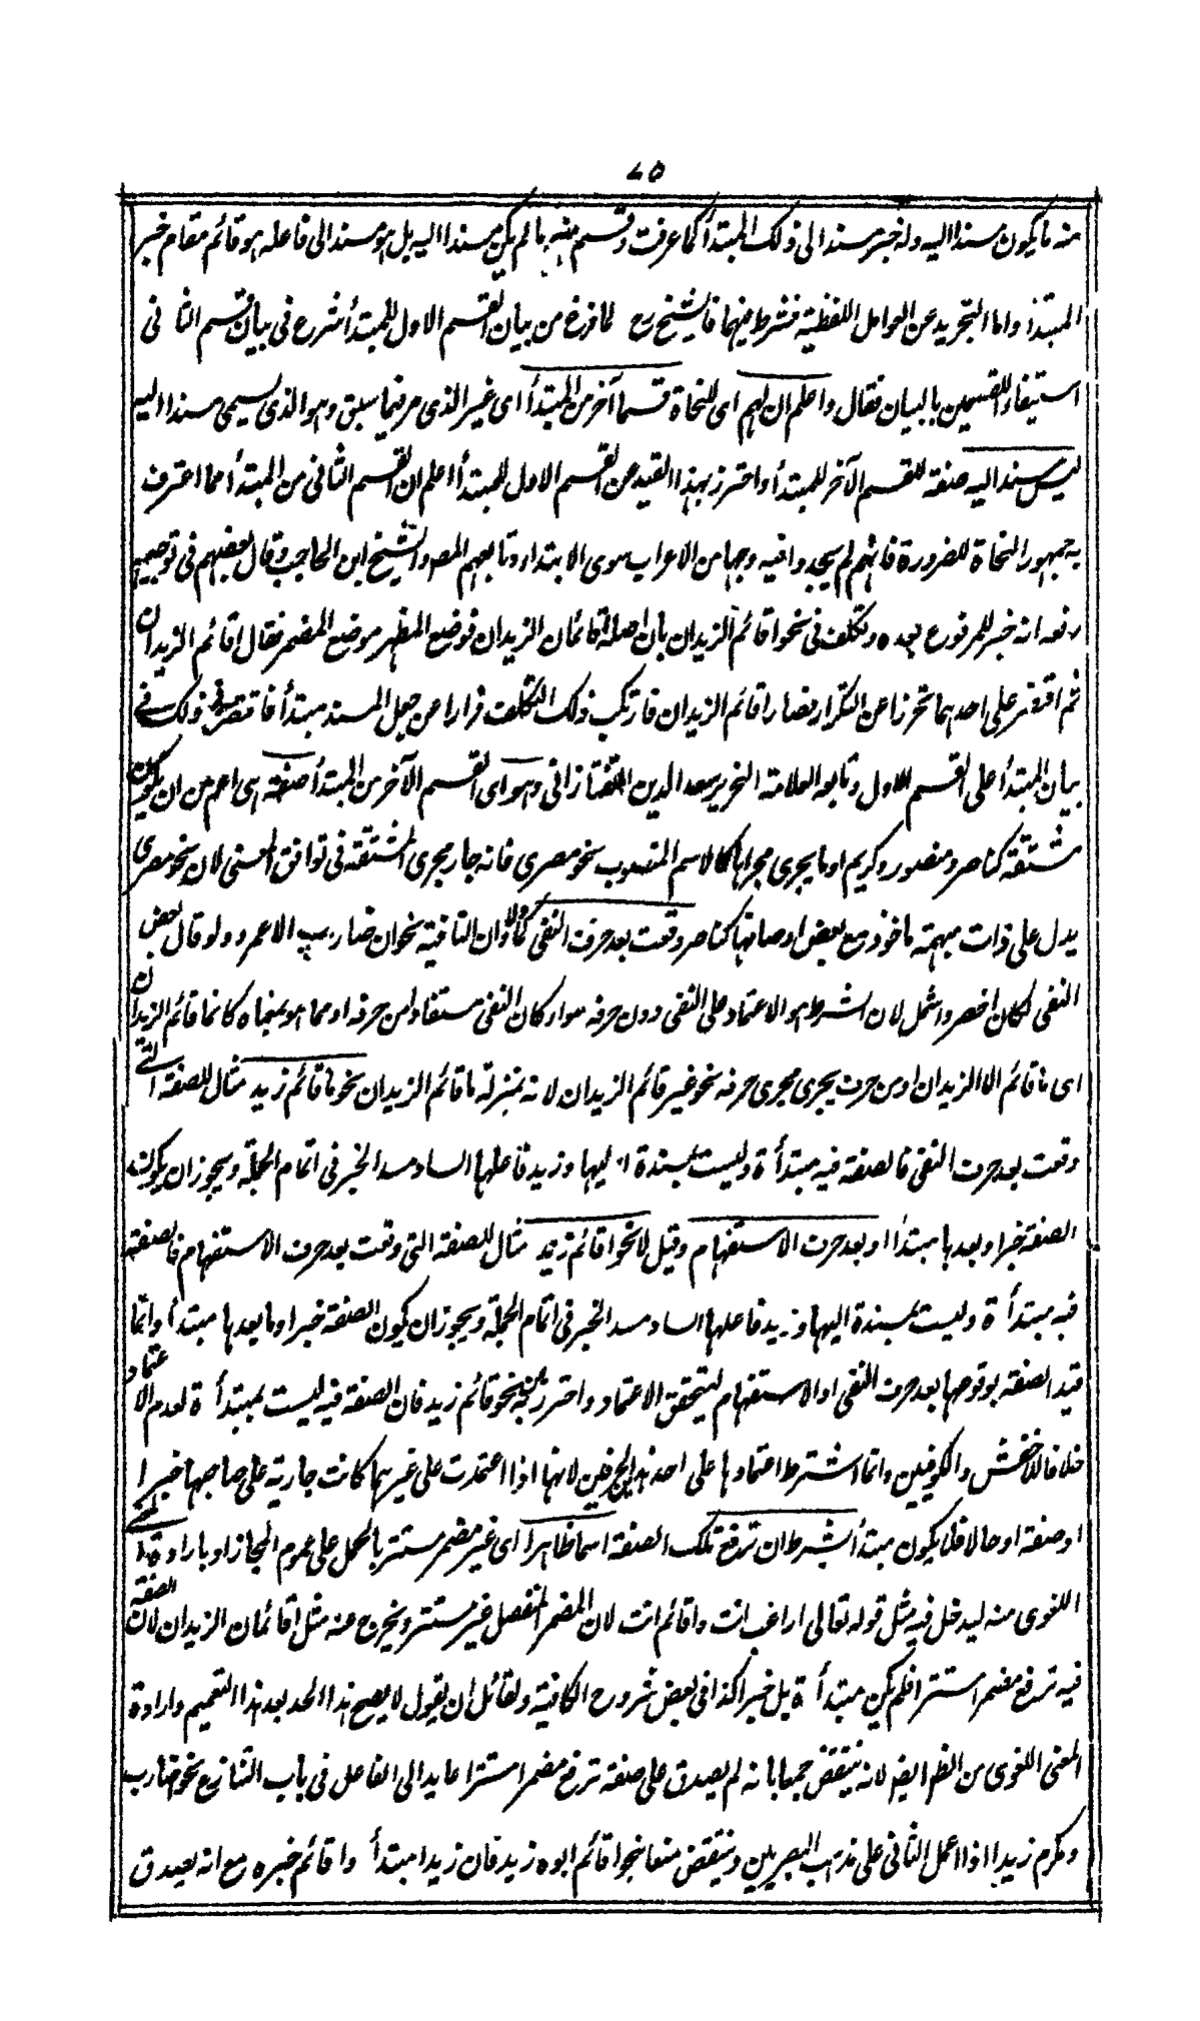 ۷۵
منه ما يكون مسندا اليه وله خبر مسند الى ذلك المبتدأ كما عرفت وقسم منه ما لم يكن مسندا اليه بل هو مسند الى فاعله هو قائم مقام خبر
المبتدأ واما التجريد عن العوامل اللفظية فشرط فيهما فالشيخ رح لما فرغ من بيان القسم الاول للمبتدأ شرع فى بيان قسم الثانى
استيفاء للقسمين بالبيان فقال واعلم ان لهم اى للنحاة قسما آخر من المبتدأ اى غير الذى مر فيما سبق وهو الذى يسمى مسندا اليه
ليس مسندا اليه صفة للقسم الآخر للمبتدأ واحترز بهذا القيد عن القسم الاول للمبتدأ اعلم ان القسم الثانى من المبتدأ مما اعترف
به جمهور النحاة للضرورة فانهم لم يجدوا فيه وجها من الاعراب سوى الابتداء وتابعهم المص والشيخ ابن الحاجب وقال بعضهم فى توجيه
رفعه انه خبر للمرفوع بعده وتكلف فى نحو اقائم الزيدان بان اصله اقائمان الزيدان فوضع المظهر موضع المضمر فقال اقائم الزيدان
ثم اقتصر على احدهما تحرزا عن التكرار فصار اقائم الزيدان فارتكب ذلك التكلف فرارا عن جعل المسند مبتدأ فاقتصر ذلك فى
بيان المبتدأ على القسم الاول وتابعه العلامة النحرير سعد الدين التفتازانى وهو اى القسم الآخر من المبتدأ صفة هى اعم من ان يكون
مشتقة كناصر ومنصور وكريم او ما يجرى مجراها كالاسم المنسوب نحو مصرى فانه جار مجرى المشتقة فى توافق المعنى لان نحو مصرى
يدل على ذات مبهمة ماخوذ مع بعض اوصافها كناصر وقعت بعد حرف النفى كما ولا وان النافية نحو ان ضارب الا عمرو ولو قال بعض
النفى لكان اخصر واشمل لان الشرط هو الاعتماد على النفى دون حرفه سواء كان النفى مستفادا من حرفه او مما هو بمعناه كانما قائم الزيدان
اى ما قائم الا الزيدان او من حرف يجرى مجرى حرفه نحو غير قائم الزيدان لانه بمنزلة ما قائم الزيدان نحو ما قائم زيد مثال للصفة التى
وقعت بعد حرف النفى فالصفة فيه مبتدأة وليست بمسندة اليها وزيد فاعلها الساد مسد الخبر فى اتمام الجملة ويجوز ان يكون
الصفة خبرا وبعدها مبتدأ او بعد حرف الاستفهام وقيل لا نحو اقائم زيد مثال للصفة التى وقعت بعد حرف الاستفهام فالصفة
فيه مبتدأة وليست بمسندة اليها وزيد فاعلها الساد مسد الخبر فى اتمام الجملة ويجوز ان يكون الصفة خبرا وما بعدها مبتدأ وانما
قيد الصفة بوقوعها بعد حرف النفى او الاستفهام ليتحقق الاعتماد واحترز به عن نحو قائم زيد فان الصفة فيه ليست بمبتدأة لعدم الاعتماد
خلافا للاخفش والكوفيين وانما اشترط اعتمادها على احد هذين الحرفين لانها اذا اعتمدت على غيرهما كانت جارية على صاحبها خبرا
او صفة او حالا فلا يكون مبتدأ بشرط ان ترفع تلك الصفة اسما ظاهرا اى غير مضمر مستتر بالحمل على عموم المجاز او بارادة المعنى
اللغوى منه ليدخل فيه مثل قوله تعالى اراغب انت واقائم انت لان المضمر المنفصل غير مستتر ويخرج عنه مثل اقائمان الزيدان لان الصفة
فيه ترفع مضمرا مستترا فلم يكن مبتدأة بل خبرا كذا فى بعض شروح الكافية ولقائل ان يقول لا يصح هذا الحد بعد هذا التعميم وارادة
المعنى اللغوى من الظ ايضا لانه ينتقض جمعا بانه لم يصدق على صفة ترفع مضمرا مستترا عايدا الى الفاعل فى باب التنازع نحو ضارب
ومكرم زيدا اذا اعمل الثانى على مذهب البصريين وينتقض منعا بنحو اقائم ابوه زيد فان زيدا مبتدأ واقائم خبره مع انه يصدق